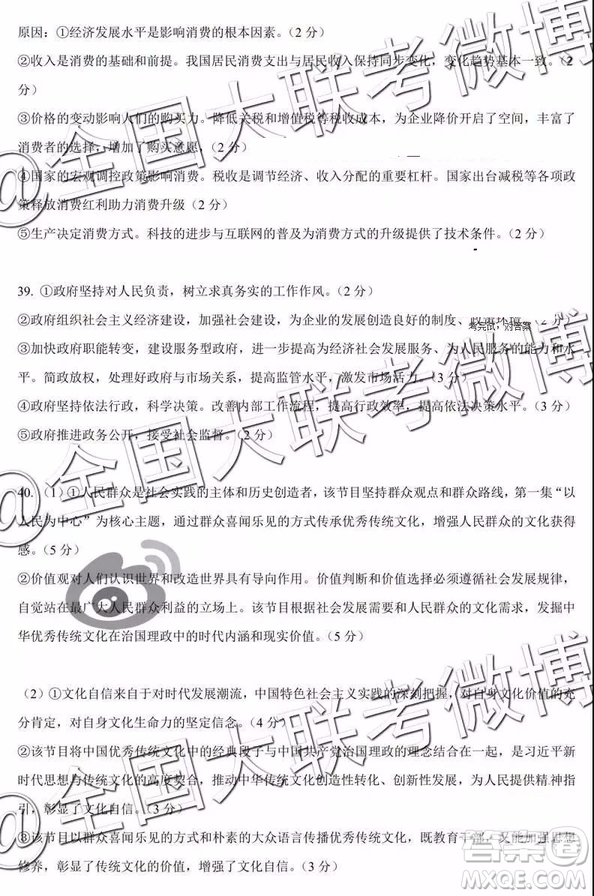 原因：①经济发展水平是影响消费的根本因素。（2 分）
②收入是消费的基础和前提。我国居民消费支出与居民收入保持同步变化，变化趋势基本一致。（2
分）
③价格的变动影响人们的购买力。降低关税和增值税等税收成本，为企业降价开启了空间，丰富了
消费者的选择，增加了购买意愿，（2 分）
④国家的宏观调控政策影响消费。税收是调节经济、收入分配的重要杠杆。国家出台减税等各项政
策释放消费红利助力消费升级（2 分）
⑤生产决定消费方式。科技的进步与互联网的普及为消费方式的升级提供了技术条件。（2 分）
39. ①政府坚持对人民负责，树立求真务实的工作作风。（2 分）
②政府组织社会主义经济建设，加强社会建设，为企业的发展创造良好的制度、（3 分）
③加快政府职能转变，建设服务型政府，进一步提高为经济社会发展、为人民服务的能力和水
平。简政放权，处理好政府与市场关系，提高监管水平，激发市场活力。（3 分）
④政府坚持依法行政，科学决策。改善内部工作流程，提高行政效率，提高依法决策水平。（3 分）
⑤政府推进政务公开，接受社会监督。（2 分）
40. （1）①人民群众是社会实践的主体和历史创造者，该节目坚持群众观点和群众路线，第一集“以
人民为中心”为核心主题，通过群众喜闻乐见的方式传承优秀传统文化，增强人民群众的文化获得
感。（5 分）
②价值观对人们认识世界和改造世界具有导向作用。价值判断和价值选择必须遵循社会发展规律，
自觉站在最广大人民群众利益的立场上。该节目根据社会发展需要和人民群众的文化需求，发掘中
华优秀传统文化在治国理政中的时代内涵和现实价值。（5 分）
（2）①文化自信来自于对时代发展潮流，中国特色社会主义实践的深刻把握，对自身文化价值的充
分肯定，对自身文化生命力的坚定信念。（4 分）
②该节目将中国优秀传统文化中的经典段子与中国共产党治国理政的理念结合在一起，是习近平新
时代思想与传统文化的高度契合，推动中华传统文化创造性转化、创新性发展，为其注入时代特
引，彰显了文化自信。（3 分）
③该节目以群众喜闻乐见的方式和朴素的大众语言传播优秀传统文化，既教育干部，又能加强思想
修养，彰显了传统文化的价值，增强了文化自信。（3 分）
@全国大联考微博
@全国大联考微博
@全国大联考微博
答案圈
MXQE.COM